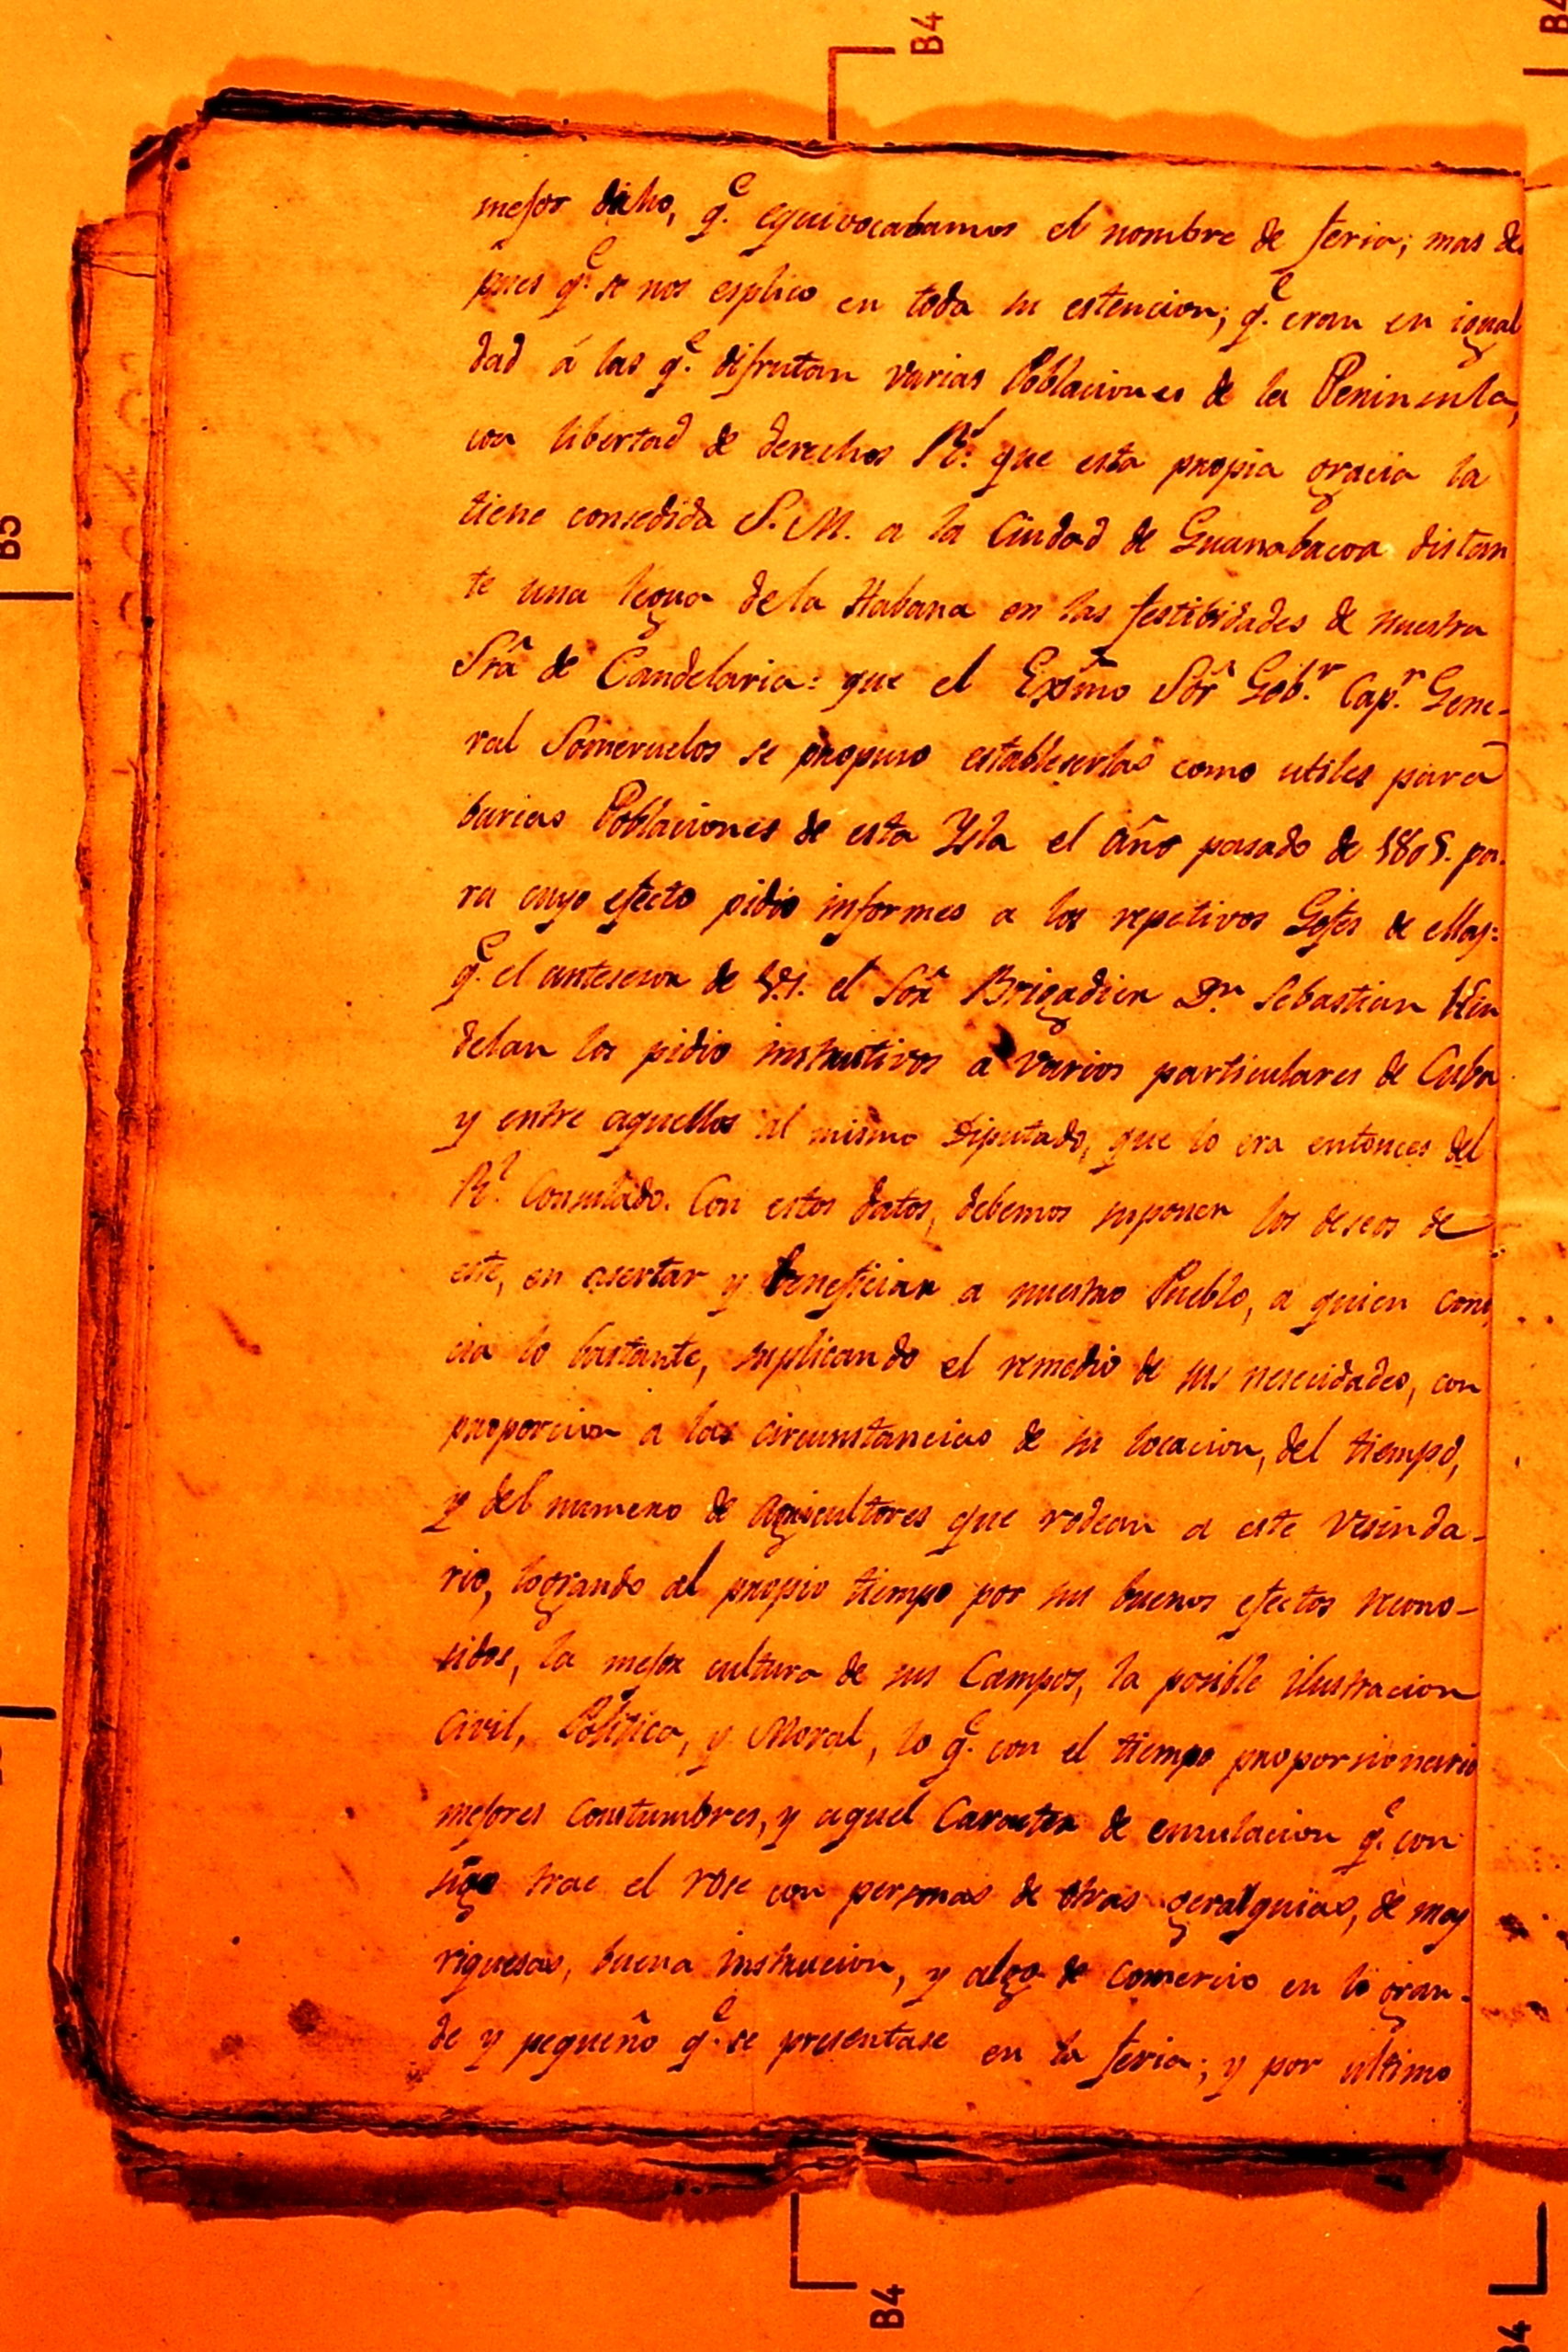 B4
mejor dicho, q.e equivocabamos el nombre de feria; mas des
pues q.e se nos esplico en toda su estencion; q.e eran en igual
dad á las q.e disfrutan varias Poblaciones de la Peninsula,
con libertad de derechos R.s que esta propia gracia la
tiene consedida S. M. a la Ciudad de Guanabacoa distan
te una legua de la Habana en las festibidades de nuestra
Srâ de Candelaria: que el Exŝmo Sôr Gob.r Cap.n Gene-
ral Someruelos se propuso estableserlas como utiles para
barias Poblaciones de esta Ysla el año pasado de 1805. pa-
ra cuyo efecto pidio informes a los repetivos Gefes de ellas:
q.e el antesesor de V.S. el Sôr Brigadier D.n Sebastian Kin
delan los pidio instrutivos a varios particulares de Cuba
y entre aquellos al mismo Diputado, que lo era entonces del
R.l Consulado. Con estos datos, debemos suponer los deseos de
este, en asertar y beneficiar a nuestro Pueblo, a quien cono
cia lo bastante, suplicando el remedio de sus nesecidades, con
proporcion a las circunstancias de su locacion, del tiempo,
y del numero de agricultores que rodean a este Vesinda-
rio, logrando al propio tiempo por sus buenos efectos recono-
sidos, la mejor cultura de sus Campos, la posible ilustracion
Civil, Politica, y Moral, lo q.e con el tiempo proporsionaria
mejores Constumbres, y aquel Caracter de emulacion q.e con
sigo trae el rose con personas de otras geralquias, de mas
riquesas, buena instrucion, y algo de comercio en lo gran-
de y pequeño q.e se presentase en la feria; y por ultimo
B4
B5